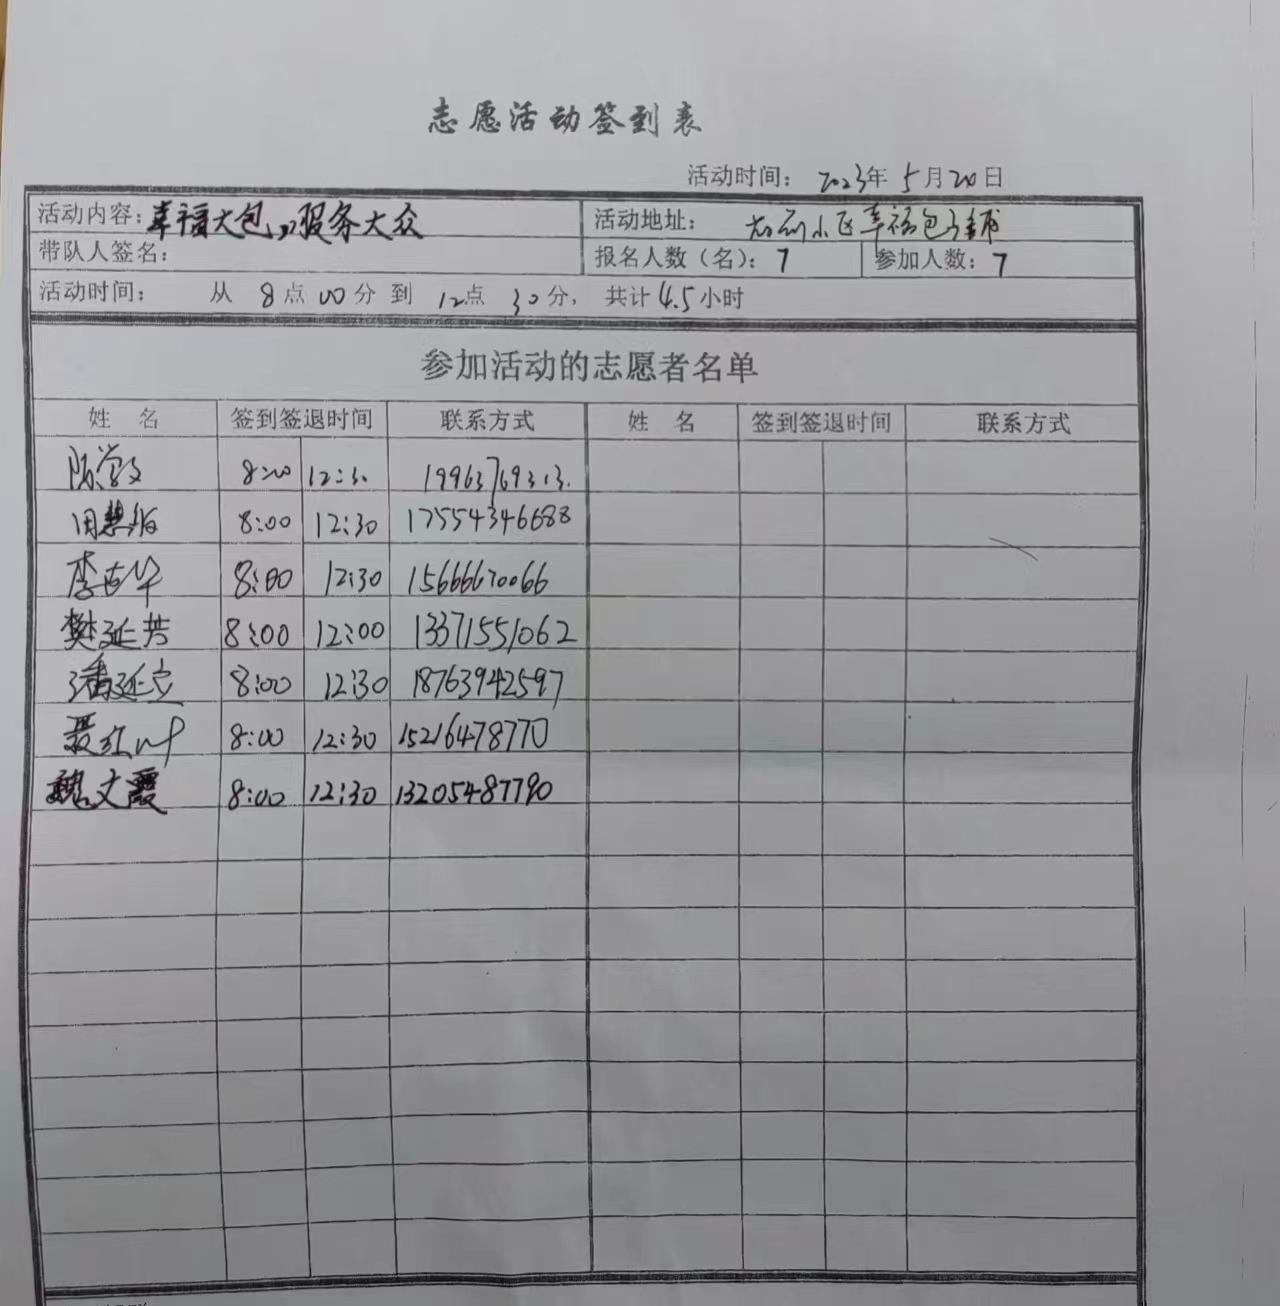 志愿活动签到表
活动时间： 2023年 5月20日
活动内容：幸福大包，服务大众 活动地址： 小区幸福包子铺
带队人签名： 报名人数（名）：7 参加人数：7
活动时间： 从 8点00分到 12点 30分， 共计4.5小时
参加活动的志愿者名单
姓 名 签到签退时间 联系方式 姓 名 签到签退时间 联系方式
陈学文 8:00 12:30 19963769313.
8:00 12:30 17554346688
李 华 8:00 12:30 15666670066
樊延芳 8:00 12:00 13371551062
潘延立 8:00 12:30 18763942597
聂红叶 8:00 12:30 15216478770
魏文霞 8:00 12:30 13205487790